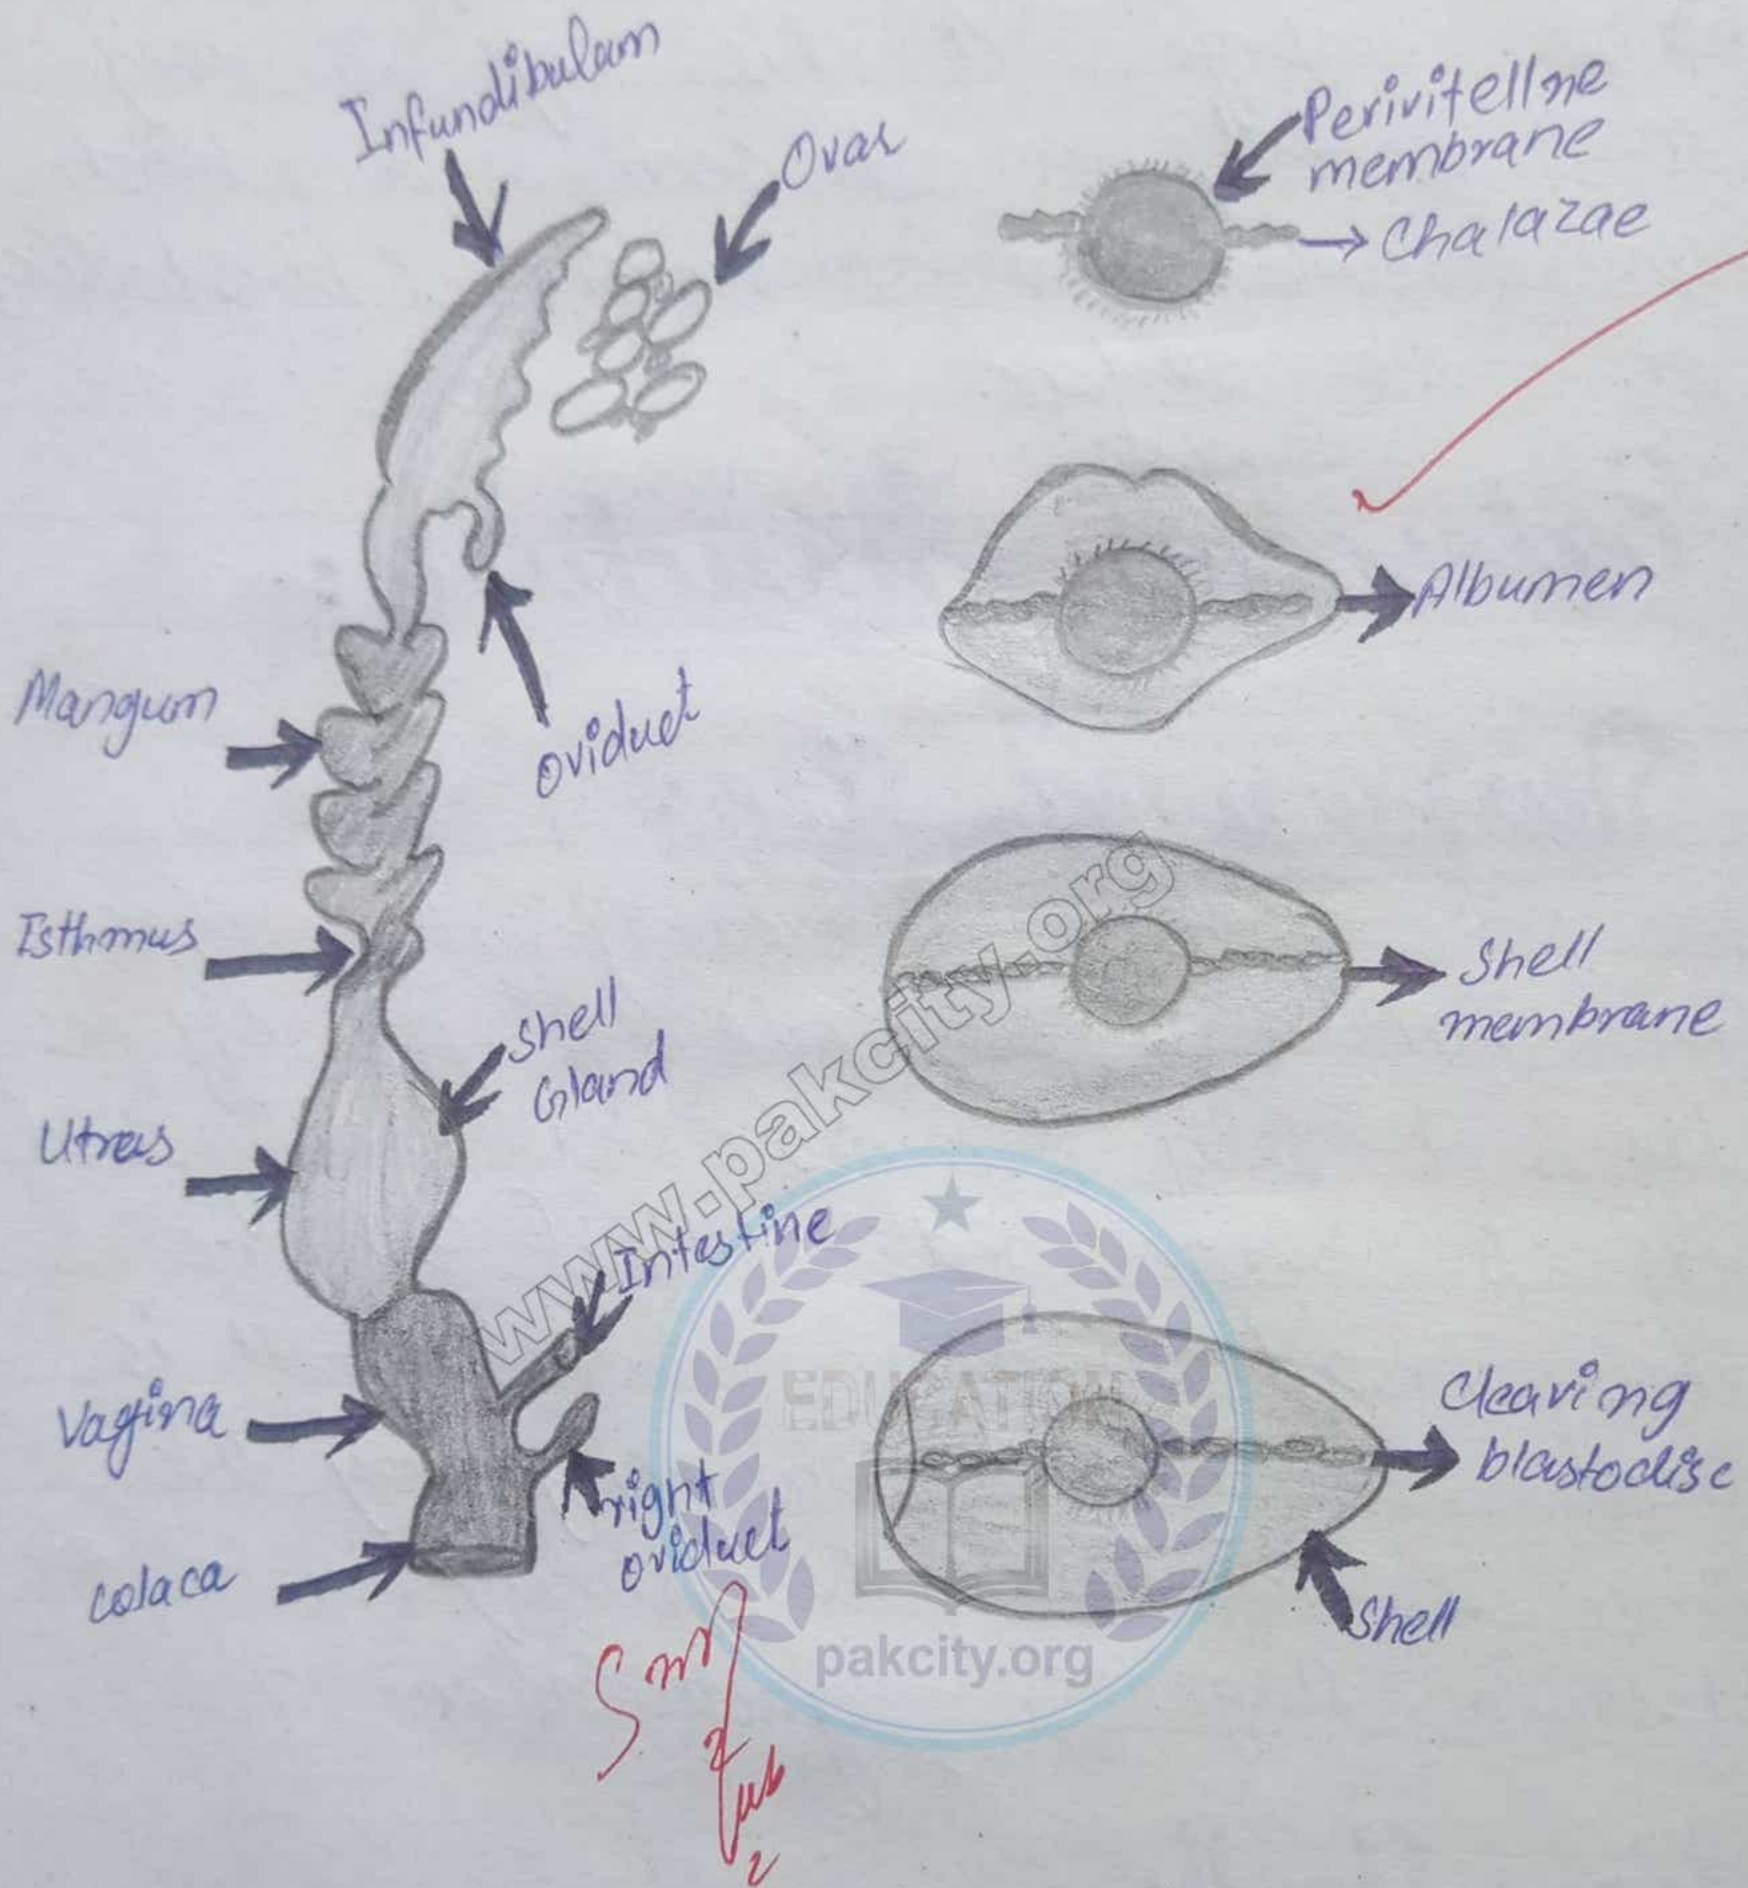 Infundibulum
Ovar
Perivitellne
membrane
Chalazae
Albumen
Mangum
Oviduct
Isthmus
Shell
Gland
Shell
membrane
Utras
Intestine
Vagina
right
oviduct
Colaca
Cleaving
blastodisc
Shell
www.pakcity.org
EDUCATION
pakcity.org